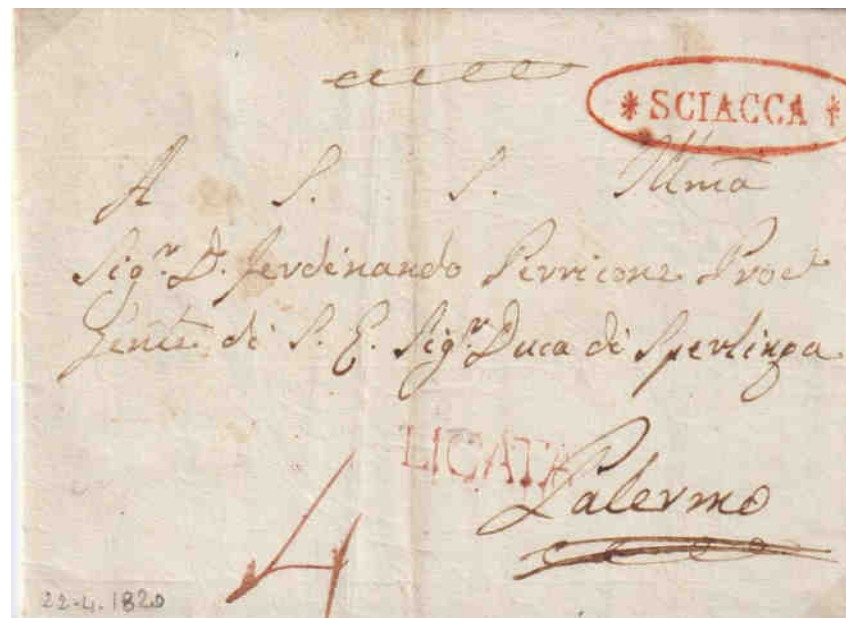 * SCIACCA *
A S. S. Illma
Sig.r D. Ferdinando Perricone Proc.
Genle. di S. E. Sig.r Duca di Sperlinga
LICATA
Palermo
4
22-4.1820